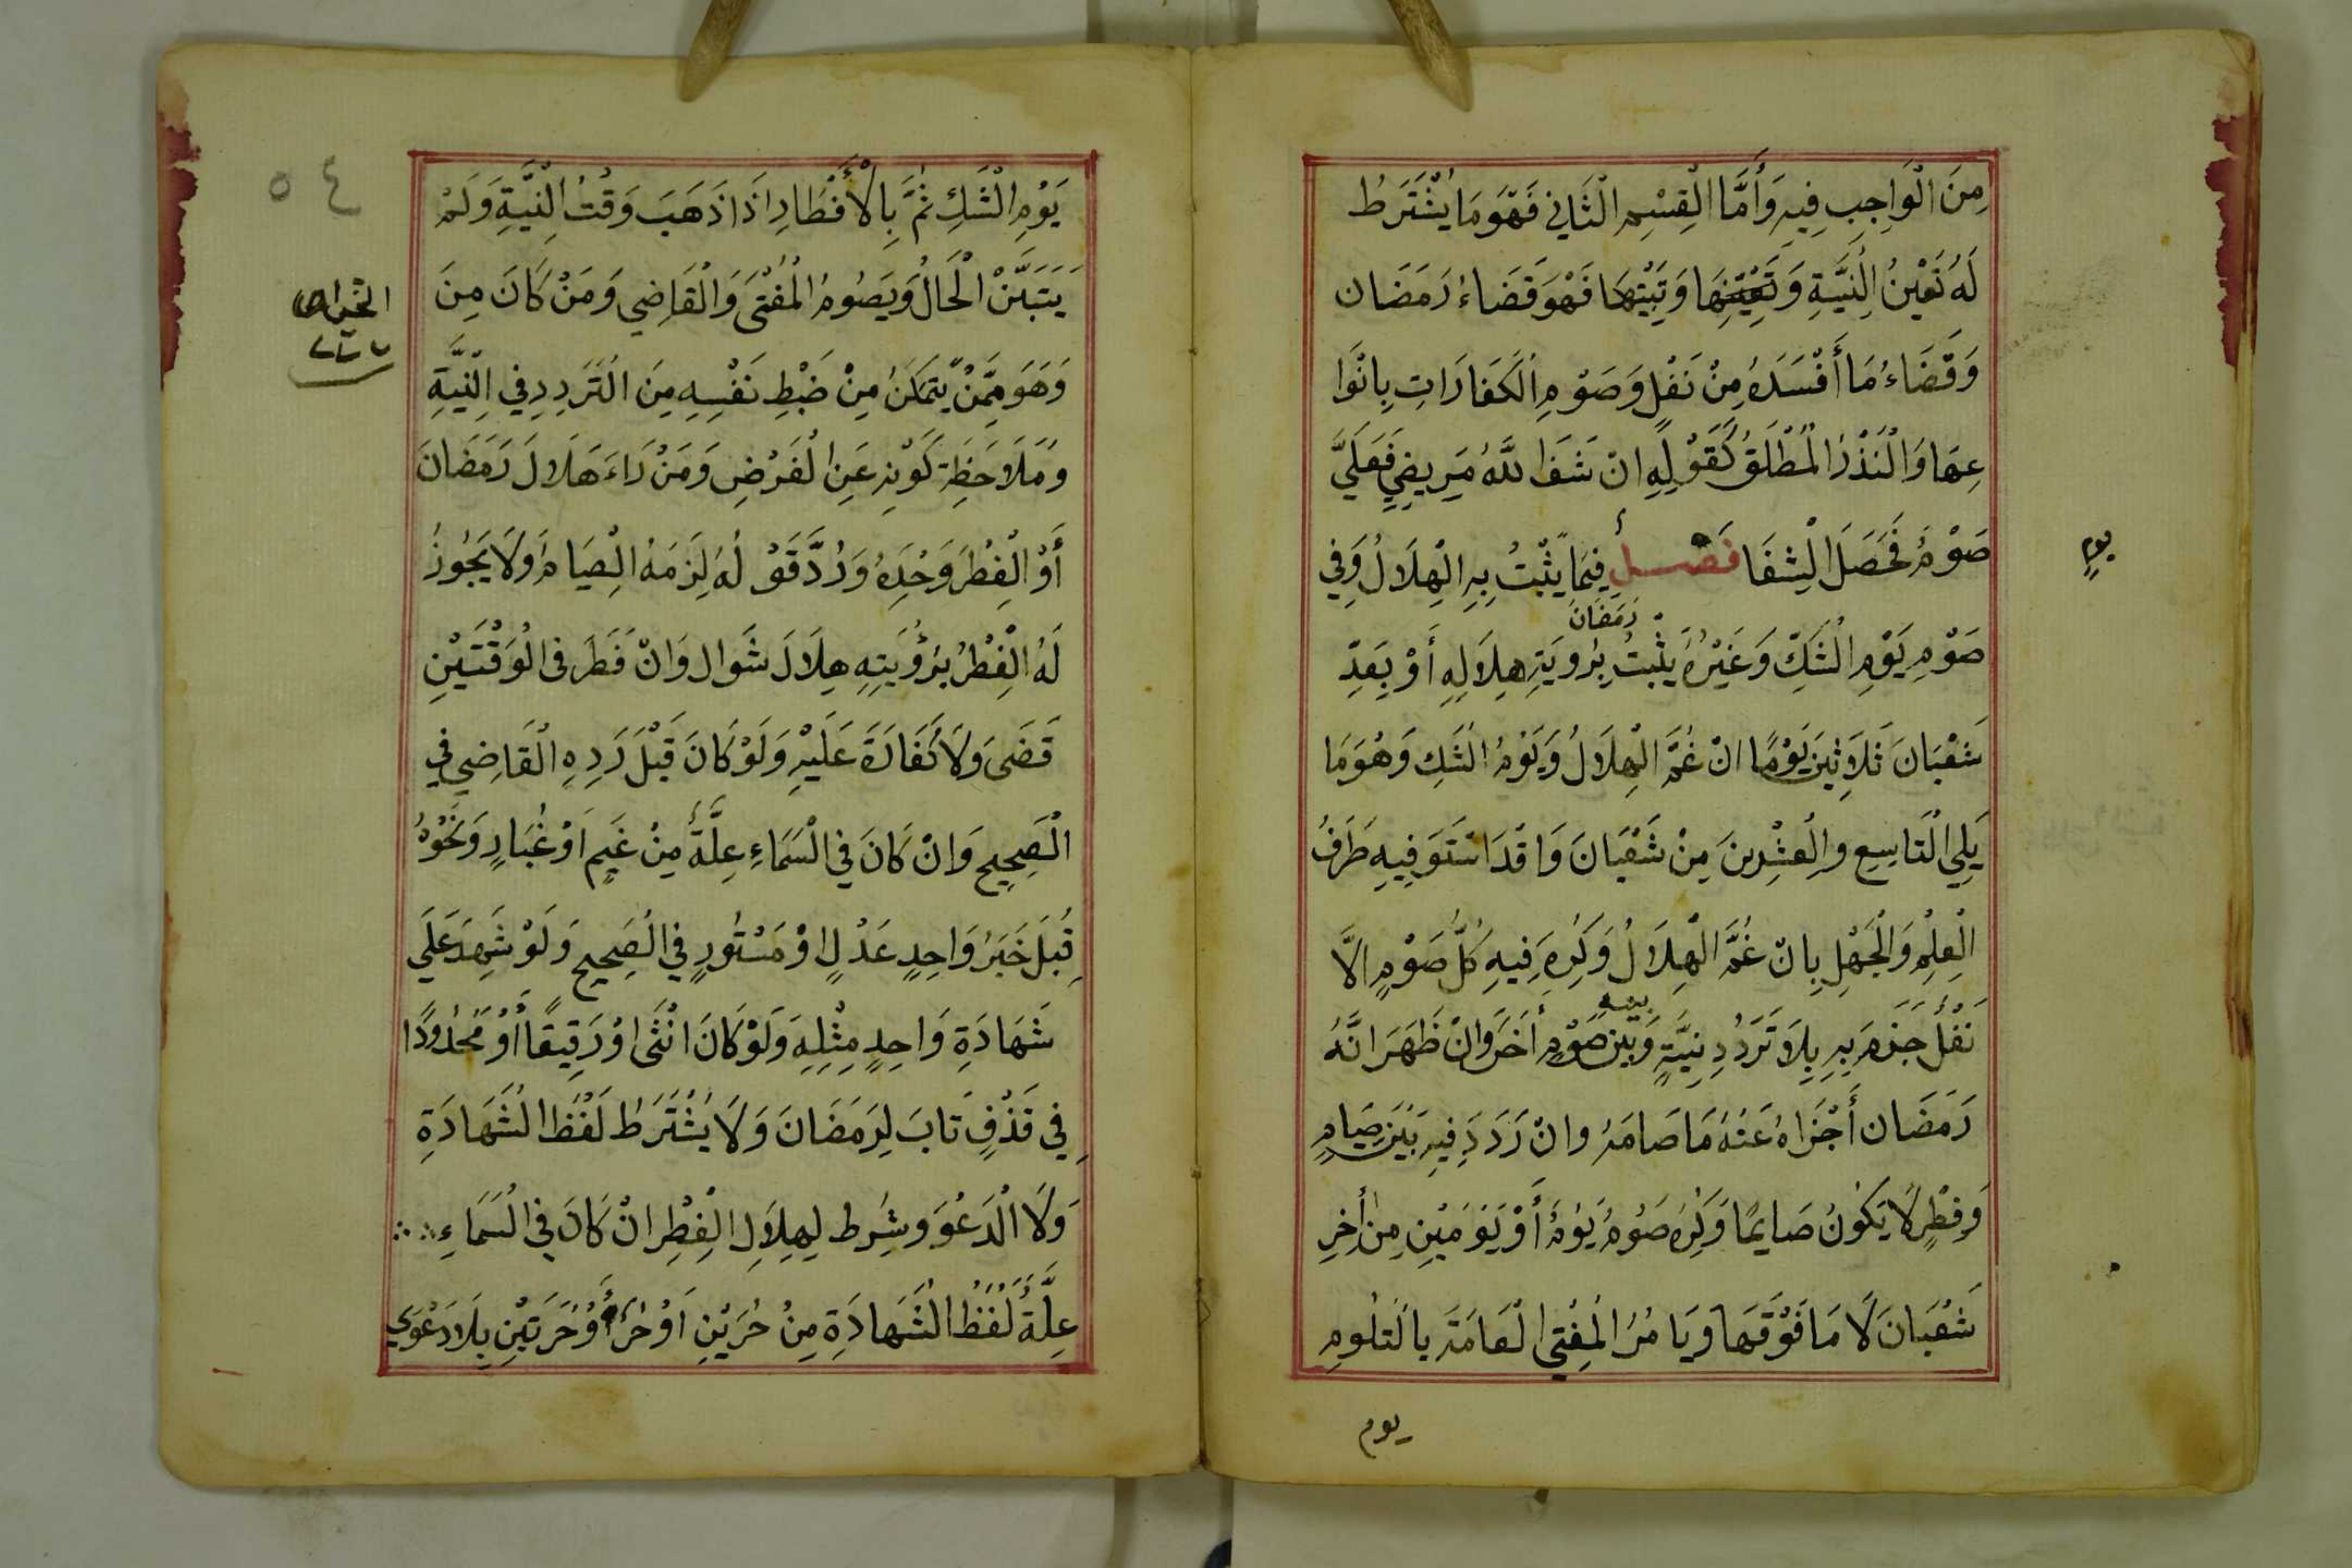 مِنَ الْوَاجِبِ فِيهِ وَأَمَّا الْقِسْمِ الثَّانِي فَهُوَ مَا يُشْتَرَطُ
لَهُ تَعْيِنُ النِّيَّةِ وَتَبْيِتِهَا فَهْوَ قَضَاءُ رَمَضَان
وَقَضَاءُ مَا أَفْسَدَهُ مِنْ نَفْلٍ وَصَوْمِ الْكَفَارَاتِ بِانْوَا
عِهَا وَالْنَذْرُ الْمُطْلَقُ كَقَوْلِهِ انْ شَفَا اللَّهُ مَرِيضِي فَعَلَيَّ
صَوْمُ فَحَصَلَ الْشِفَا فَصْلٌ فِيمَا يَثْبُتُ بِهِ الْهِلَالُ وَفِي
يوم
رَمَضَانَ
صَوْمِ يَوْمِ الْشَكِّ وَغَيْرُهُ يَثْبُتُ بِرُويَةِ هِلَالِهِ أَوْ بِعَدِّ
شَعْبَانَ ثَلَاثِينَ يَوْمًا انْ غُمَّ الْهِلَالُ وَيَوْمُ الْشَكِ وَهُوَ مَا
يَلِي الْتَاسِعِ والْعِشْرِينَ مِنْ شَعْبَانَ وَاقْدَ اسْتَوَ فِيهِ طَرَفُ
الْعِلْمِ وَالْجَهْلِ بِانْ غُمَّ الْهِلَالُ وَكُرِهَ فِيهِ كُلُّ صَوْمٍ الَّا
نَفْلُ جَزَمَ بِهِ بِلَا تَرَدُدِ نِيَّةٍ وَبَيْن صَوْمٍ أَخَرَ وَانْ ظَهَرَ انَّهُ
رَمَضَان أَجْزَاهُ عَنْهُ مَا صَامَهُ وانْ رَدَدَ فِيهِ بَيْنَ صِيَامٍ
وَفِطْرٍ لَا يَكُونُ صَايِمًا وَكُرِهَ صَوْمُ يَوْمٌ أَوْ يَوَمَيْنِ مِنْ أَخِرِ
شَعْبَانَ لَا مَا فَوْقَهَا وَيَامُرُ الْمُفْتِي الْعَامَةَ بِالْتَلُومِ
يوم
٥٤
يَوْمِ الْشَكِ ثُمَّ بِالْأَفْطَارِ اذَا ذَهَبَ وَقْتُ الْنِّيَّةِ وَلَمْ
يَتَبَيَّنْ الْحَالُ وَيَصُومُ الْمُفْتَى وَالْقَاضِي وَمَنْ كَانَ مِنَ
وَهَوَ مِمَّنْ يَتَمَكَنُ مِنْ ضَبْطِ نَفْسِهِ مِنَ الْتَرَدِدِ فِي الْنِيَّةِ
وَمَلَاحَظِةِ كَوْنِهِ عَنِ الْفَرْضِ وَمَنْ رَاءَ هَلَالَ رَمَضَانَ
أَوْ الْفِطْرَ وَحْدَهُ وَرُدَّ قَوْ لُهُ لَزِمَهُ الْصِيَامُ وَلَا يَجُوزُ
لَهُ الْفِطْرُ بِرُؤْيَتِهِ هِلَالَ شَوَال وَانْ فَطَرَ فى الْوَقْتَيْنِ
قَضَى وَلَا كَفَارَةَ عَلَيْهِ وَلَوْ كَانَ قَبْلَ رَدِهِ الْقَاضِي فِي
الْصَحِيحِ وَانْ كَانَ فِي الْسَمَاءِ عِلَّةٌ مِنْ غَيمٍ اَوْ غُبَارٍ وَنَحْوُهُ
قُبِلَ خَبَرُ وَاحِدٍ عَدْلٍ اوْ مَسْتُورٍ فِي الْصَحِيحِ وَلَوْ شَهِدَ عَلَي
شَهَادَةِ وَاحِدٍ مِثْلِهِ وَلَوْ كَانَ انْثَى اوْ رَقِيقًا أَوْ مَحْدُودًا
فِي قَذْفٍ تَابَ لِرَمَضَانَ وَلَا يُشْتَرَطُ لَفْظُ الْشَهَادَةِ
وَلَا الْدَعْوَ وشُرِط لِهِلَالِ الْفِطْرِ انْ كَانَ فِي الْسَمَاءِ
عِلَّةٌ لَفْظُ الْشَهَادَةِ مِنْ حُرَيْنِ اَوْ حُرٍ أَوْحُرَتَيْنِ بِلَا دَعْوَي